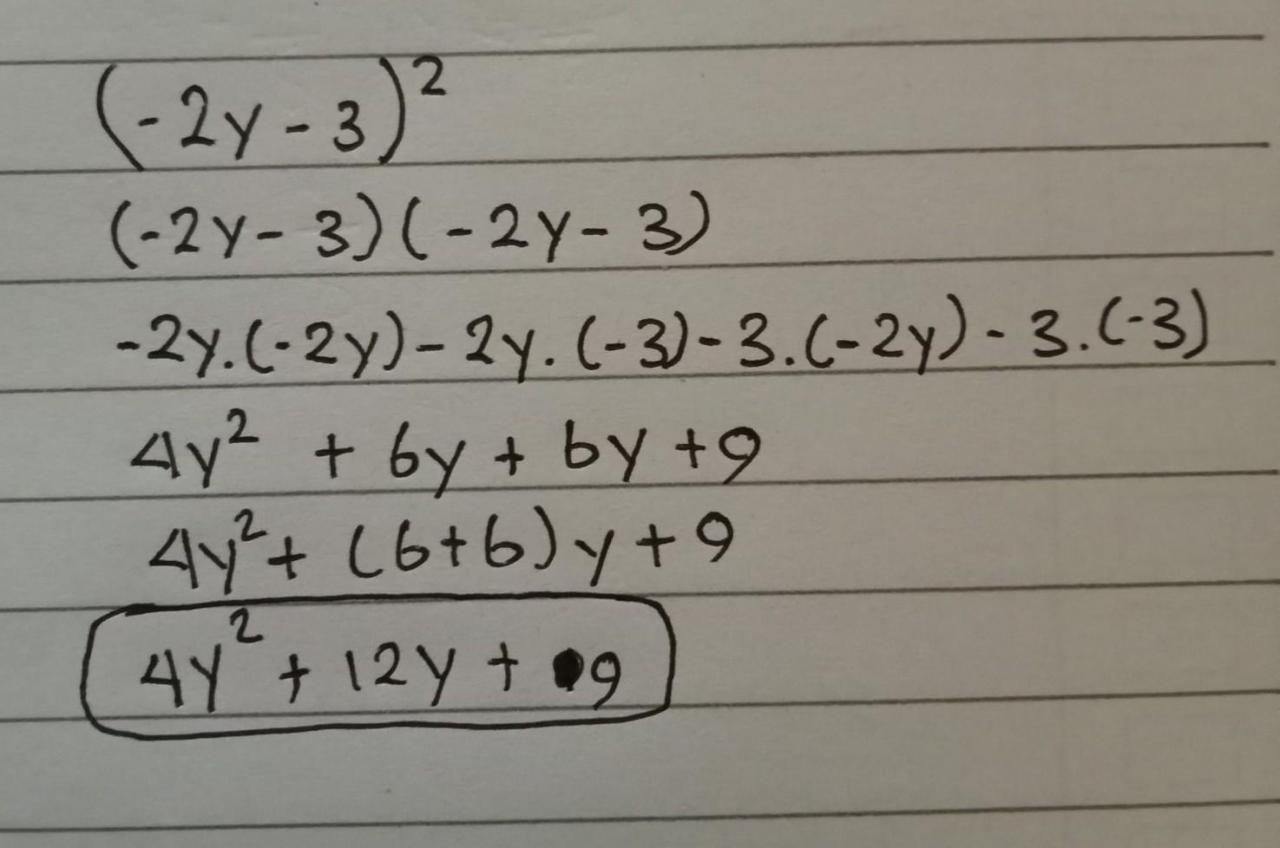 (-2y-3)²
(-2y-3)(-2y-3)
-2y.(-2y)-2y.(-3)-3.(-2y)-3.(-3)
4y² + 6y + 6y +9
4y²+ (6+6)y+9
4y² + 12y + 9